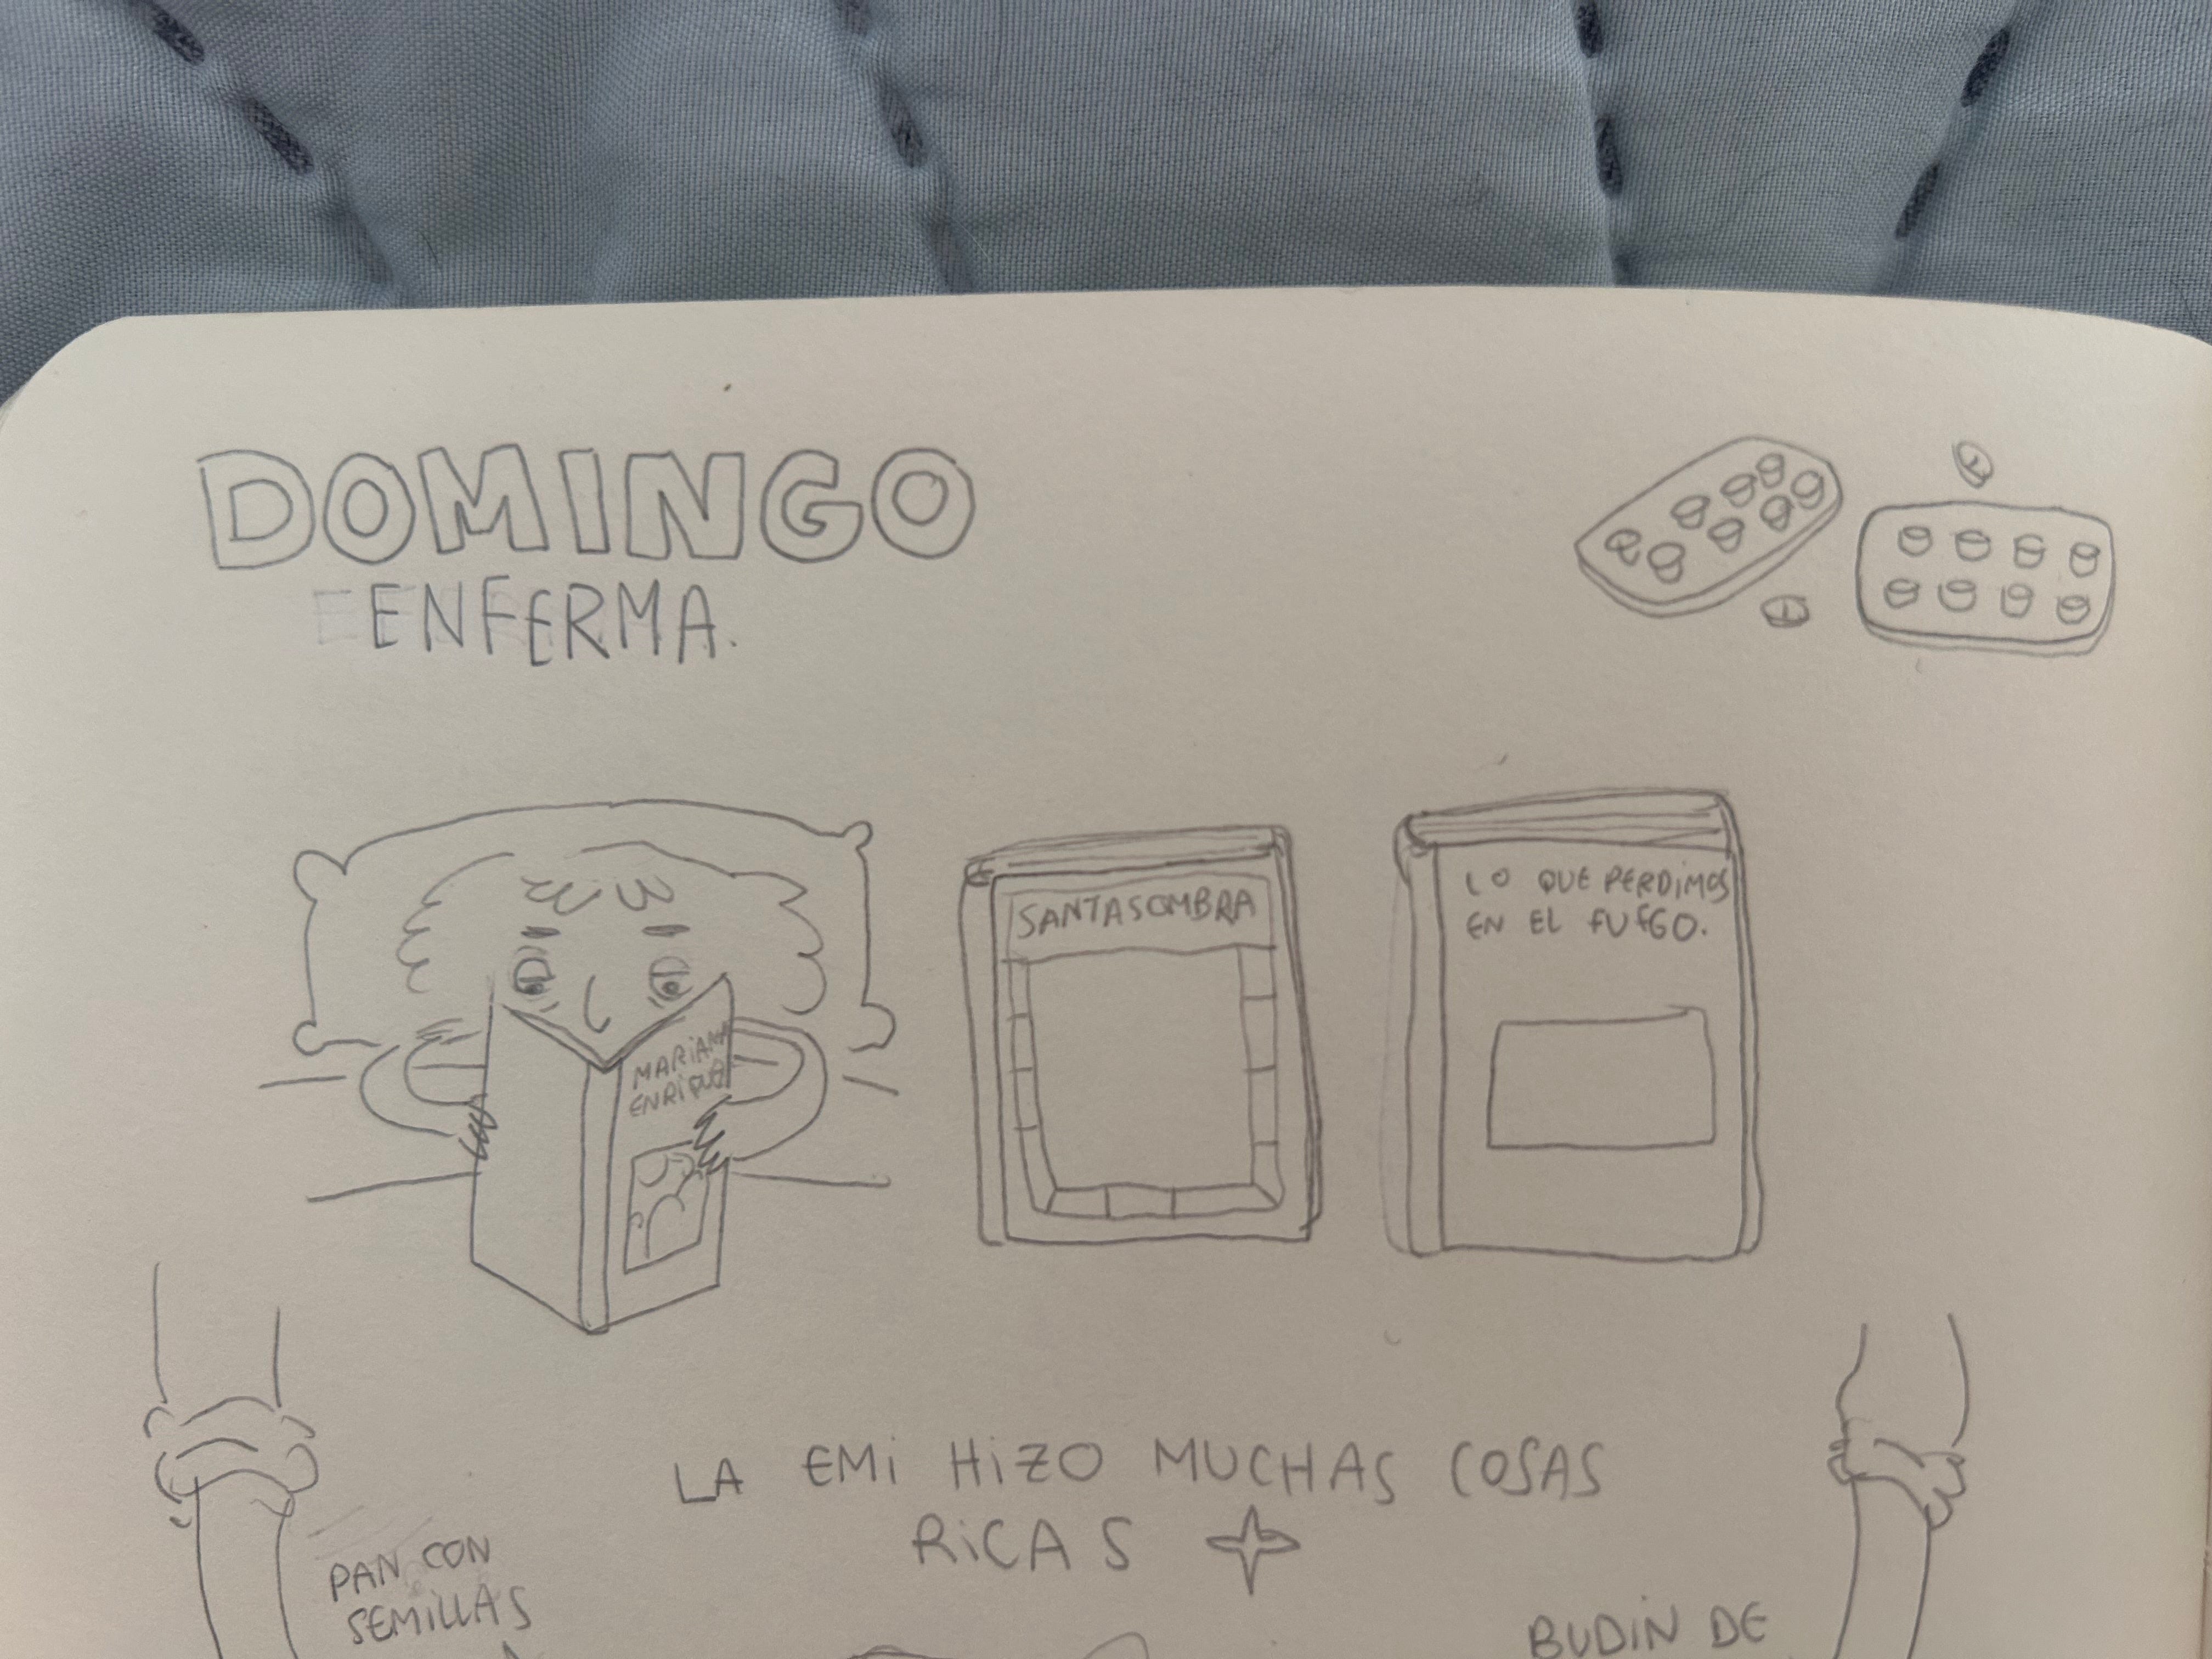 DOMINGO
ENFERMA.
MARIANA
ENRIQUE
SANTASOMBRA
LO QUE PERDIMOS
EN EL FUEGO.
LA EMI HIZO MUCHAS COSAS
RICAS
PAN CON
SEMILLAS
BUDIN DE